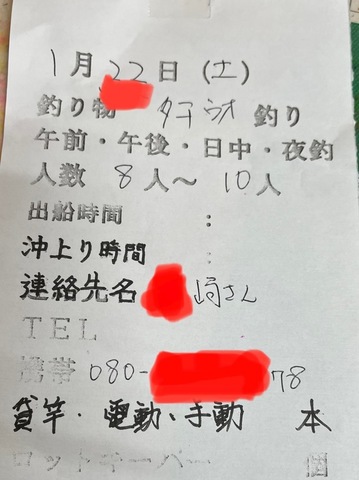 1月22日(土)
釣り物 タチウオ 釣り
午前・午後・日中・夜釣
人数 8人~10人
出船時間 :
沖上り時間 :
連絡先名 崎さん
TEL
携帯 080- 78
貸竿・電動・手動 本
ロットキーパー 個